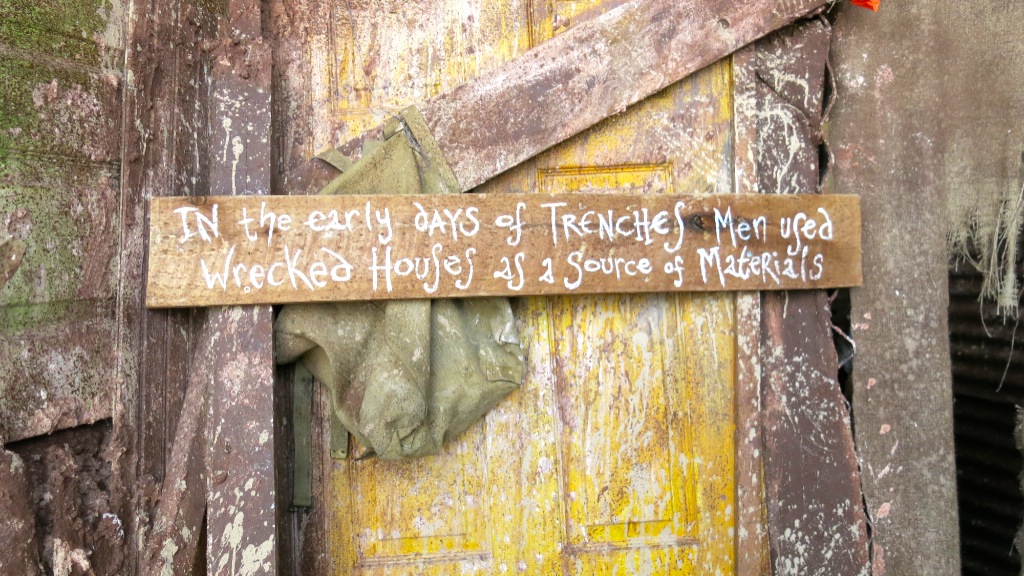 IN the early DAYS of TRENCHES Men used
Wrecked Houses as a Source of Materials